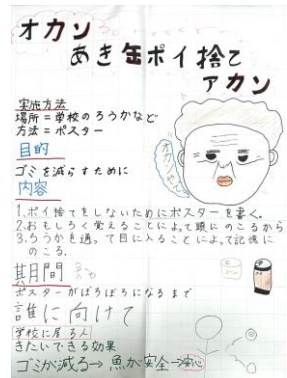 オカン
あき缶ポイ捨て
アカン
実施方法
場所=学校のろうかなど
方法=ポスター
目的
オカンやん
ゴミを減らすために
内容
1.ポイ捨てをしないためにポスターを書く。
2.おもしろく覚えることによって頭にのこるから
3.ろうかを通って目に入ることによって記憶に
のこる.
期間
ポスターがぼろぼろになるまで
誰に向けて
学校に居る人
きたいできる効果
ゴミが減る→魚が安全→安心